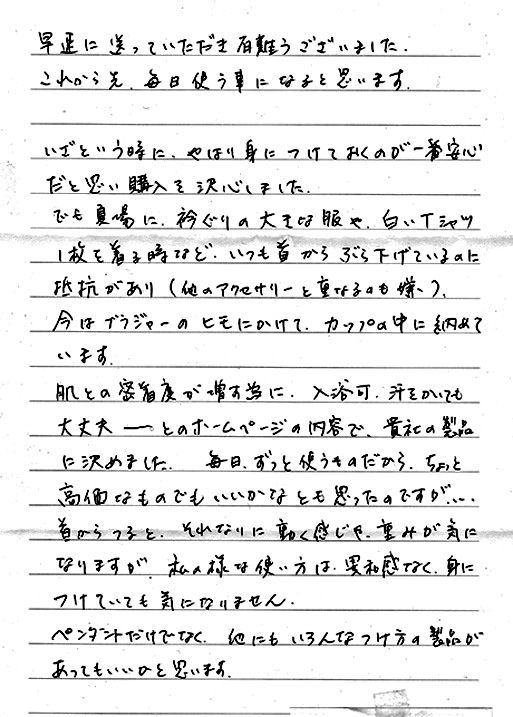 早速に送っていただき有難うございました。
これから先、毎日使う事になると思います。
いざという時に、やはり身につけておくのが一番安心
だと思い購入を決心しました。
でも夏場に、衿ぐりの大きな服や、白いTシャツ
1枚を着る時など、いつも首からぶら下げているのに
抵抗があり(他のアクセサリーと重なるのも嫌い)、
今はブラジャーのヒモにかけて、カップの中に納めて
います。
肌との密着度が増す当に、入浴可、汗をかいても
大丈夫──とのホームページの内容で、貴社の製品
に決めました。 毎日、ずっと使うものだから、ちょっと
高価なものでもいいかなとも思ったのですが…、
首からつると、それなりに動く感じや、重みが気に
なりますが、私の様な使い方は、異和感なく、身に
つけていても気になりません。
ペンダントだけでなく、他にもいろんなつけ方の製品が
あってもいいかと思います。